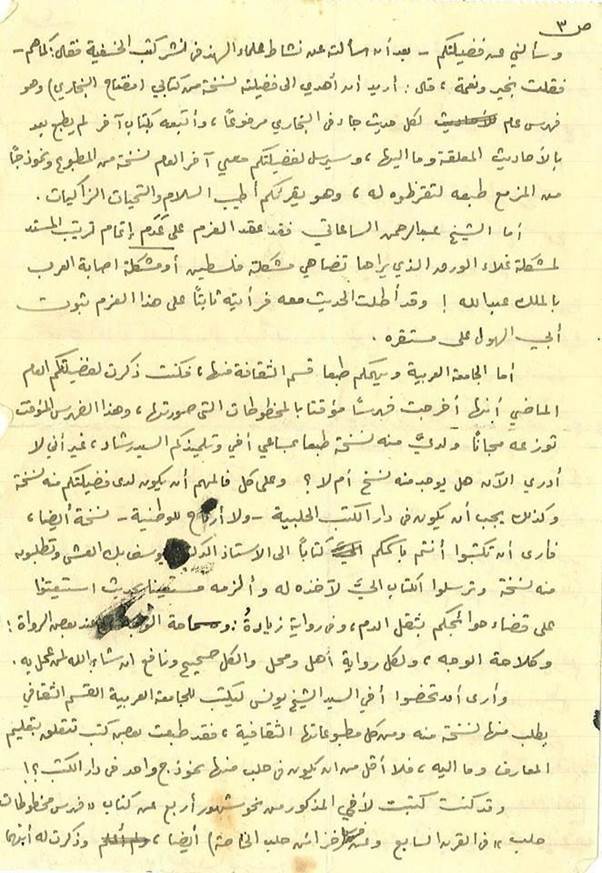 ص ٣
وسألني عن فضيلتكم - بعد أن سألته عن نشاط علماء الهند في نشر كتب الحنفية فقال: كما هم -
فقلت بخير ونعمة، قال: أريد أن أهدي إلى فضيلته نسخة من كتابي (مفتاح البخاري) وهو
فهرس عام لكل حديث جاء في البخاري مرفوعاً، وأتبعه بكتاب آخر لم يطبع بعد
بالأحاديث المعلقة وما إليها، وسيرسل لفضيلتكم معي آخر العام نسخة من المطبوع ونموذجاً
من المزمع طبعه لتقرظوه له، وهو يقرئكم أطيب السلام والتحيات الزاكيات.
أما الشيخ عبدالرحمن الساعاتي فقد عقد العزم على عدم إتمام ترتيب المسند
لمشكلة غلاء الورق الذي يراها تضاهي مشكلة فلسطين أو مشكلة اصابة العرب
بالملك عبدالله! وقد أطلت الحديث معه فرأيته ثابتاً على هذا العزم ثبوت
أبي الهول على مستقره.
أما الجامعة العربية ويهمكم طبعا قسم الثقافة منها، فكنت ذكرت لفضيلتكم العام
الماضي أنها أخرجت فهرسًا مؤقتا بالمخطوطات التي صورتها، وهذا الفهرس المؤقت
توزعه مجاناً ولديّ منه نسخة طبعا بمساعي أخي وتلميذكم السيد رشاد، غير أني لا
أدري الآن هل يوجد منه نسخ أم لا؟ وعلى كل فالمهم أن يكون لدى فضيلتكم منه نسخة
وكذلك يجب أن يكون في دار الكتب الحلبية - ولا للوطنية - نسخة أيضا،
فأرى أن تكتبوا أنتم باسمكم كتاباً الى الاستاذ يوسف بك العش وتطلبون
منه نسخة وترسلوا الكتاب اليّ لآخذه له وألزمه مستعينا بحديث استعينوا
على قضاء حوائجكم بثقل الدم، وفي رواية زيادةُ: وسماحة عند بعض الرواة:
وكلاحة الوجه، ولكل رواية أهل ومحل والكل صحيح ونافع ان شاء الله لمن عمل به.
وأرى أن تحضوا أخي السيد الشيخ يونس ليكتب للجامعة العربية القسم الثقافي
يطلب منها نسخة منه ومن كل مطبوعاتها الثقافية، فقد طبعت بعض كتب تتعلق بتعليم
المعارف وما اليه، فلا أقل من ان يكون في حلب منها نموذج واحد في دار الكتب؟!
وقد كنت كتبت لأخي المذكور من نحو شهور أربع عن كتاب «فهرس مخطوطات
حلب» في القرن السابع وعن خزائن حلب الخاصة) أيضا، وذكرت له أنهما